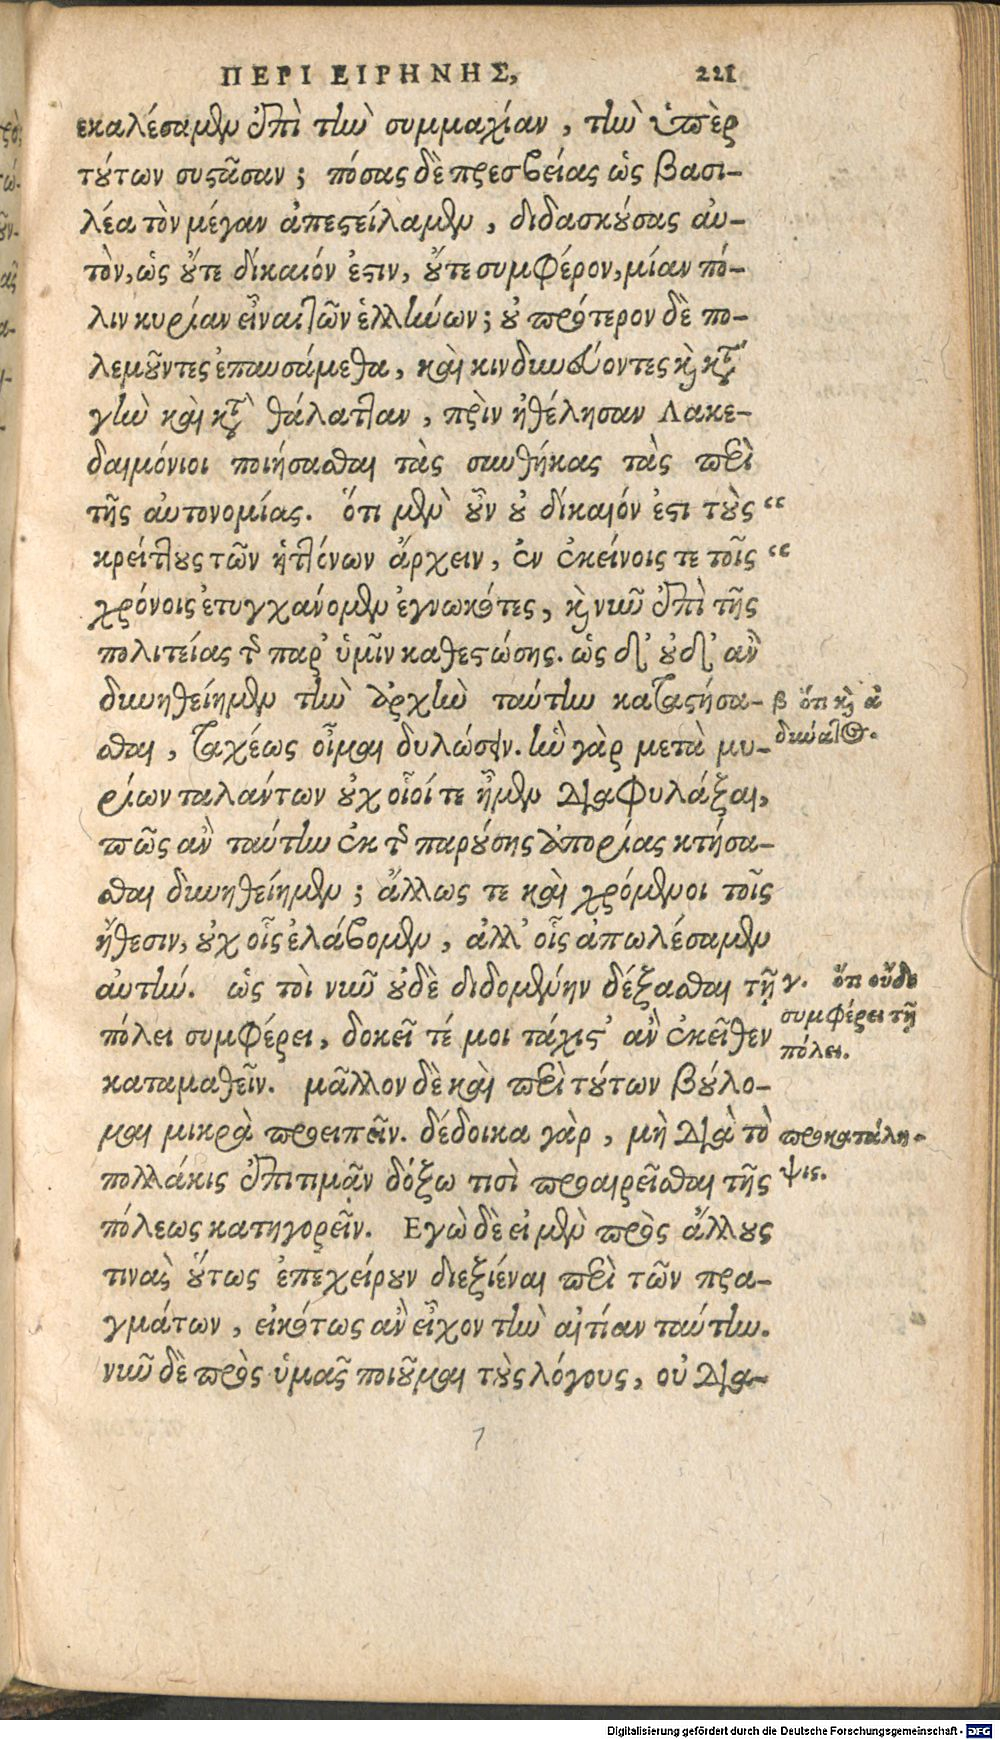 ΠΕΡΙ ΕΙΡΗΝΗΣ, 221
εκαλέσαμεν ἐπὶ τὴν συμμαχίαν, τὴν ὑπὲρ
τούτων συστᾶσαν; πόσας δὲ πρεσβείας ὡς βασι-
λέα τὸν μέγαν ἀπεστείλαμεν, διδασκούσας αὐ-
τὸν, ὡς οὔτε δίκαιόν ἐστιν, οὔτε συμφέρον, μίαν πό-
λιν κυρίαν εἶναι τῶν ἑλλήνων; οὐ πρότερον δὲ πο-
λεμοῦντες ἐπαυσάμεθα, καὶ κινδυνεύοντες καὶ κατὰ
γῆν καὶ κατὰ θάλατταν, πρὶν ἠθέλησαν Λακε-
δαιμόνιοι ποιήσασθαι τὰς συνθήκας τὰς περὶ
τῆς αὐτονομίας. ὅτι μὲν οὖν οὐ δίκαιόν ἐστι τοὺς “
κρείττους τῶν ἡττόνων ἄρχειν, ἐν ἐκείνοις τε τοῖς “
χρόνοις ἐτυγχάνομεν ἐγνωκότες, καὶ νῦν ἐπὶ τῆς
πολιτείας τῆς παρ' ὑμῖν καθεστώσης. ὡς δ' οὐδ' ἂν
δυνηθείημεν τὴν ἀρχὴν ταύτην καταστήσα-
σθαι, ταχέως οἶμαι δηλώσειν. ἣν γὰρ μετὰ μυ-
ρίων ταλάντων οὐχ οἷοί τε ἦμεν διαφυλάξαι,
πῶς ἂν ταύτην ἐκ τῆς παρούσης ἀπορίας κτήσα-
σθαι δυνηθείημεν; ἄλλως τε καὶ χρόμενοι τοῖς
ἤθεσιν, οὐχ οἷς ἐλάβομεν, ἀλλ' οἷς ἀπωλέσαμεν
αὐτήν. ὡς τοὶ νῦν οὐδὲ διδομένην δέξασθαι τῇ
πόλει συμφέρει, δοκεῖ τέ μοι τάχιστ' ἂν ἐκεῖθεν
καταμαθεῖν. μᾶλλον δὲ καὶ περὶ τούτων βούλο-
μαι μικρὰ προειπεῖν. δέδοικα γὰρ, μὴ διὰ τὸ
πολλάκις ἐπιτιμᾷν δόξω τισὶ προαιρεῖσθαι τῆς
πόλεως κατηγορεῖν. Εγὼ δὲ εἰ μὲν πρὸς ἄλλους
τινὰς οὕτως ἐπεχείρουν διεξιέναι περὶ τῶν πρα-
γμάτων, εἰκότως ἂν εἶχον τὴν αἰτίαν ταύτην.
νῦν δὲ πρὸς ὑμᾶς ποιοῦμαι τοὺς λόγους, οὐ δια-
β ὅτι καὶ ἀ
δύνατος.
γ. ὅτι οὐδὲ
συμφέρει τῇ
πόλει.
προκατάλη-
ψις.
Digitalisierung gefördert durch die Deutsche Forschungsgemeinschaft - DFG